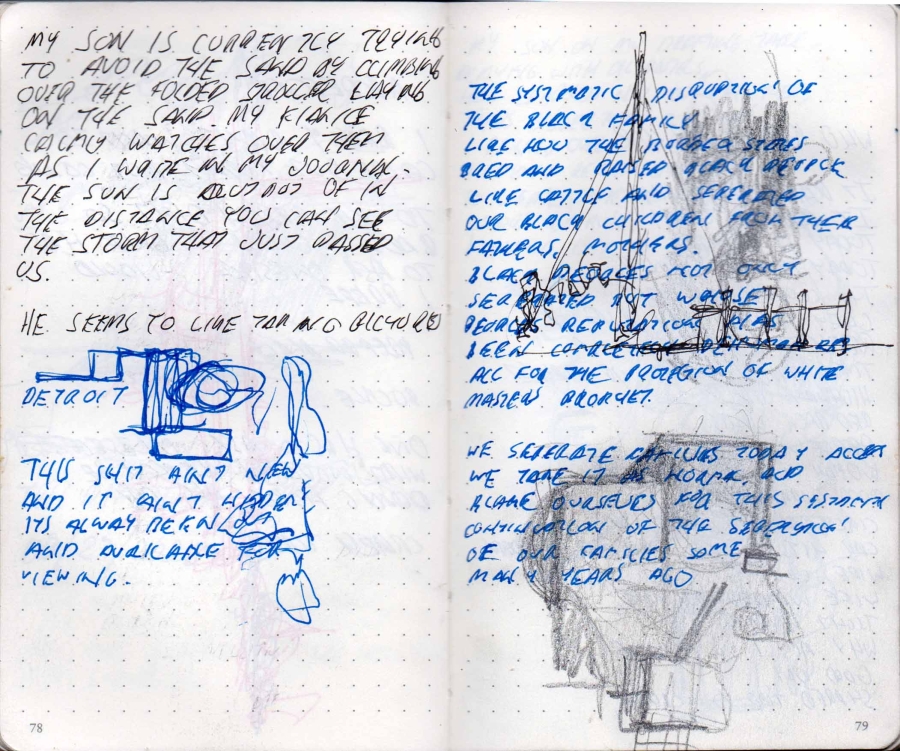 MY SON IS CURRENTLY TRYING
TO AVOID THE SAND BY CLIMBING
OVER THE FOLDED STROLLER LAYING
ON THE SAND. MY FIANCE
CALMLY WATCHES OVER THEM
AS I WRITE IN MY JOURNAL.
THE SUN IS OUT OF IN
THE DISTANCE YOU CAN SEE
THE STORM THAT JUST PASSED
US.
HE SEEMS TO LIKE TAKING PICTURES
DETROIT
THIS SHIT AINT NEW
AND IT AINT HIDDEN
ITS ALWAY BEEN
AND AVAILABLE FOR
VIEWING.
78
THE SYSTMATIC DISRUPTION OF
THE BLACK FAMILY
LIKE HOW THE BORDER STATES
BRED AND RAISED BLACK PEOPLE
LIKE CATTLE AND SEPERATED
OUR BLACK CHILDREN FROM THEIR
FATHERS, MOTHERS.
BLACK PEOPLES NOT ONLY
SEPERATED BUT WHOSE
PEOPLES REPUTATIONS
BEEN COMPLETELY
ALL FOR THE PROTECTION OF WHITE
MASTERS PROPHET.
WE SEPERATE FAMILIES TODAY ACCEPT
WE TAKE IT AS NORMAL AND
BLAME OURSELVES FOR THIS SYSTMATIC
CONTINUATION OF THE SEPERATION
OF OUR FAMILIES SOME
MANY YEARS AGO
79